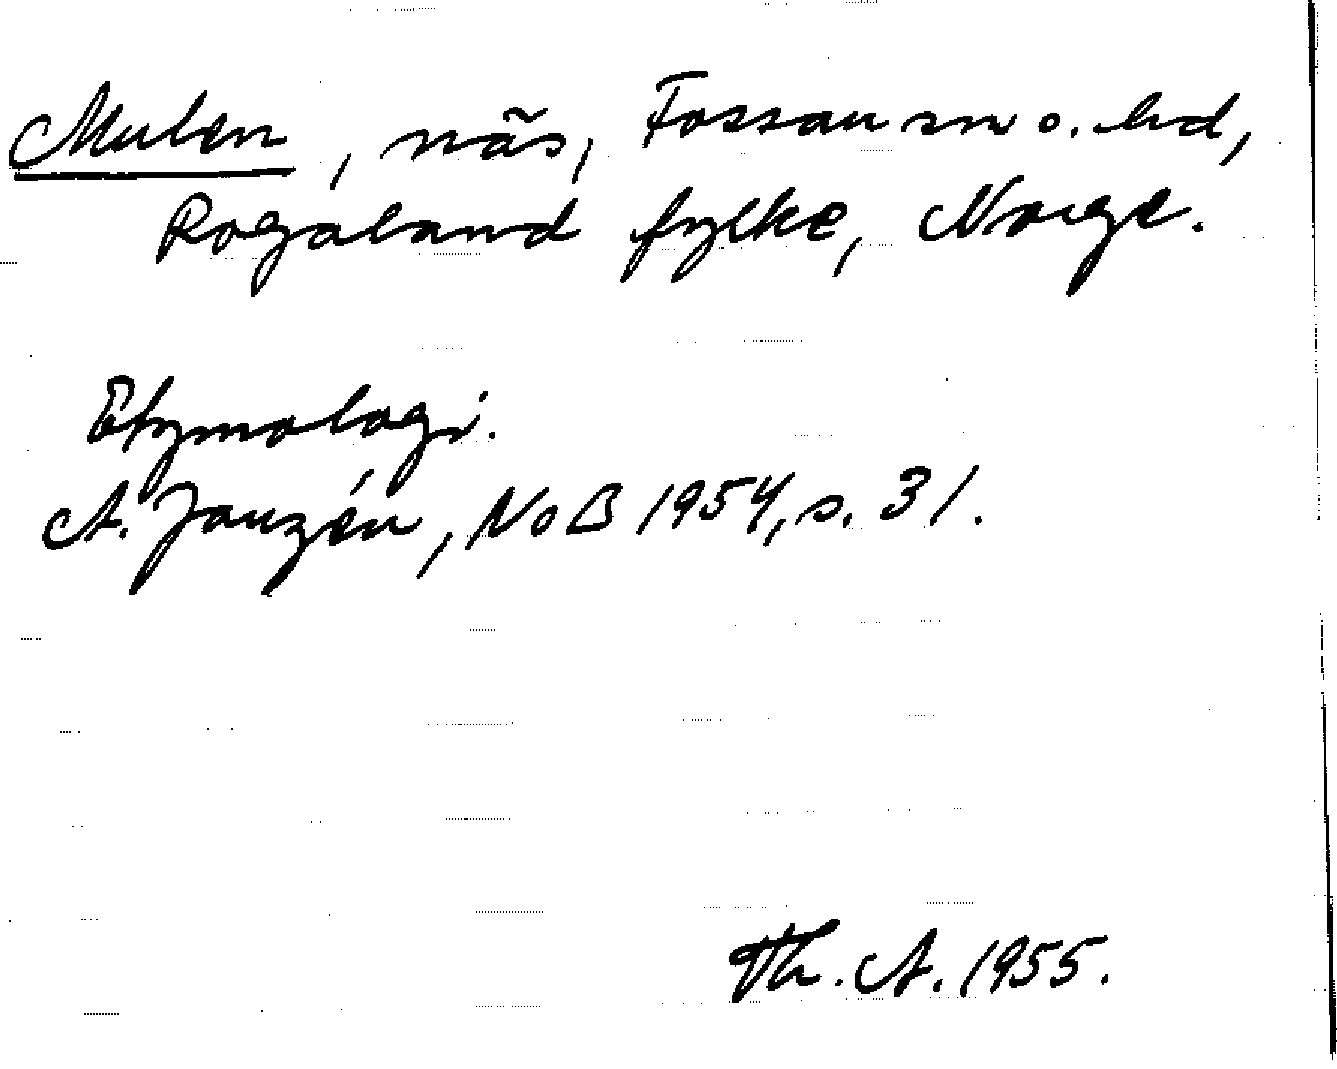 Mulen, näs, Fossan sn o. hd,
Rogaland fylke, Norge.
Etymologi.
A. Janzén, NoB 1954, s. 31.
Th. A. 1955.